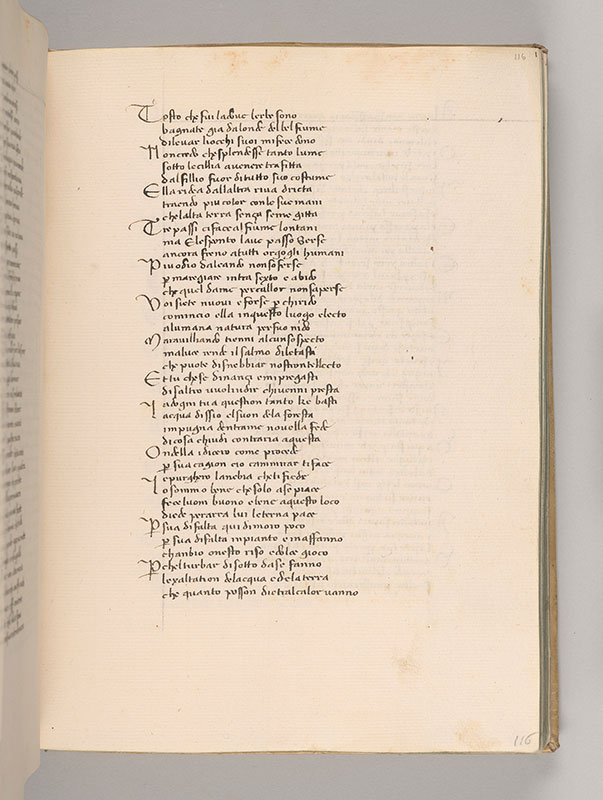 116
Tosto che fui laduc lerbe sono
bagnate gia dalonde delbel fiume
dileuar liocchi suoi mifece dono
Non credo che splendesse tanto lume
sotto lecillia auenere trafitta
dalfillio fuor ditutto suo costume
Ella ridea dallaltra riua dricta
traendo piu color conle sue mani
chelalta terra senza seme gitta
Tre passi ciface al fiume lontani
ma Elesponto laue passo Serse
ancora freno atutti orgogli humani
Piu odio daleandro nonsoferse
p mareggiare intra sexto e abido
che quel dame perchallor nonsaperse
Voi siete nuoui e forse p chirido
comincio ella inquesto luogo electo
alumana natura persuo nido
Marauilliando tienui alcunsospecto
maluce rende il salmo diletasti
che puote disnebbiar nostrontellecto
Et tu chese dinanzi emipregasti
disaltro uuoliudir chiuenni presta
adogni tua question tanto ke basti
Lacqua dissio elsuon dela foresta
impugna dentrame nouella fede
dicosa chiudi contraria aquesta
Ondella i dicero come procede
p sua cagion cio cammirar tiface
e purghero lanebia cheti fiede
Lo sommo bene che solo asepiace
fece luom buono e bene aquesto loco
diede perarra lui leterna pace
P sua difalta qui dimoro poco
p sua difalta inpianto e inaffanno
chanbio onesto riso edolce gioco
P chelturbar disotto dase fanno
lexaltation delacqua e delaterra
che quanto posson dietralcalor uanno
116